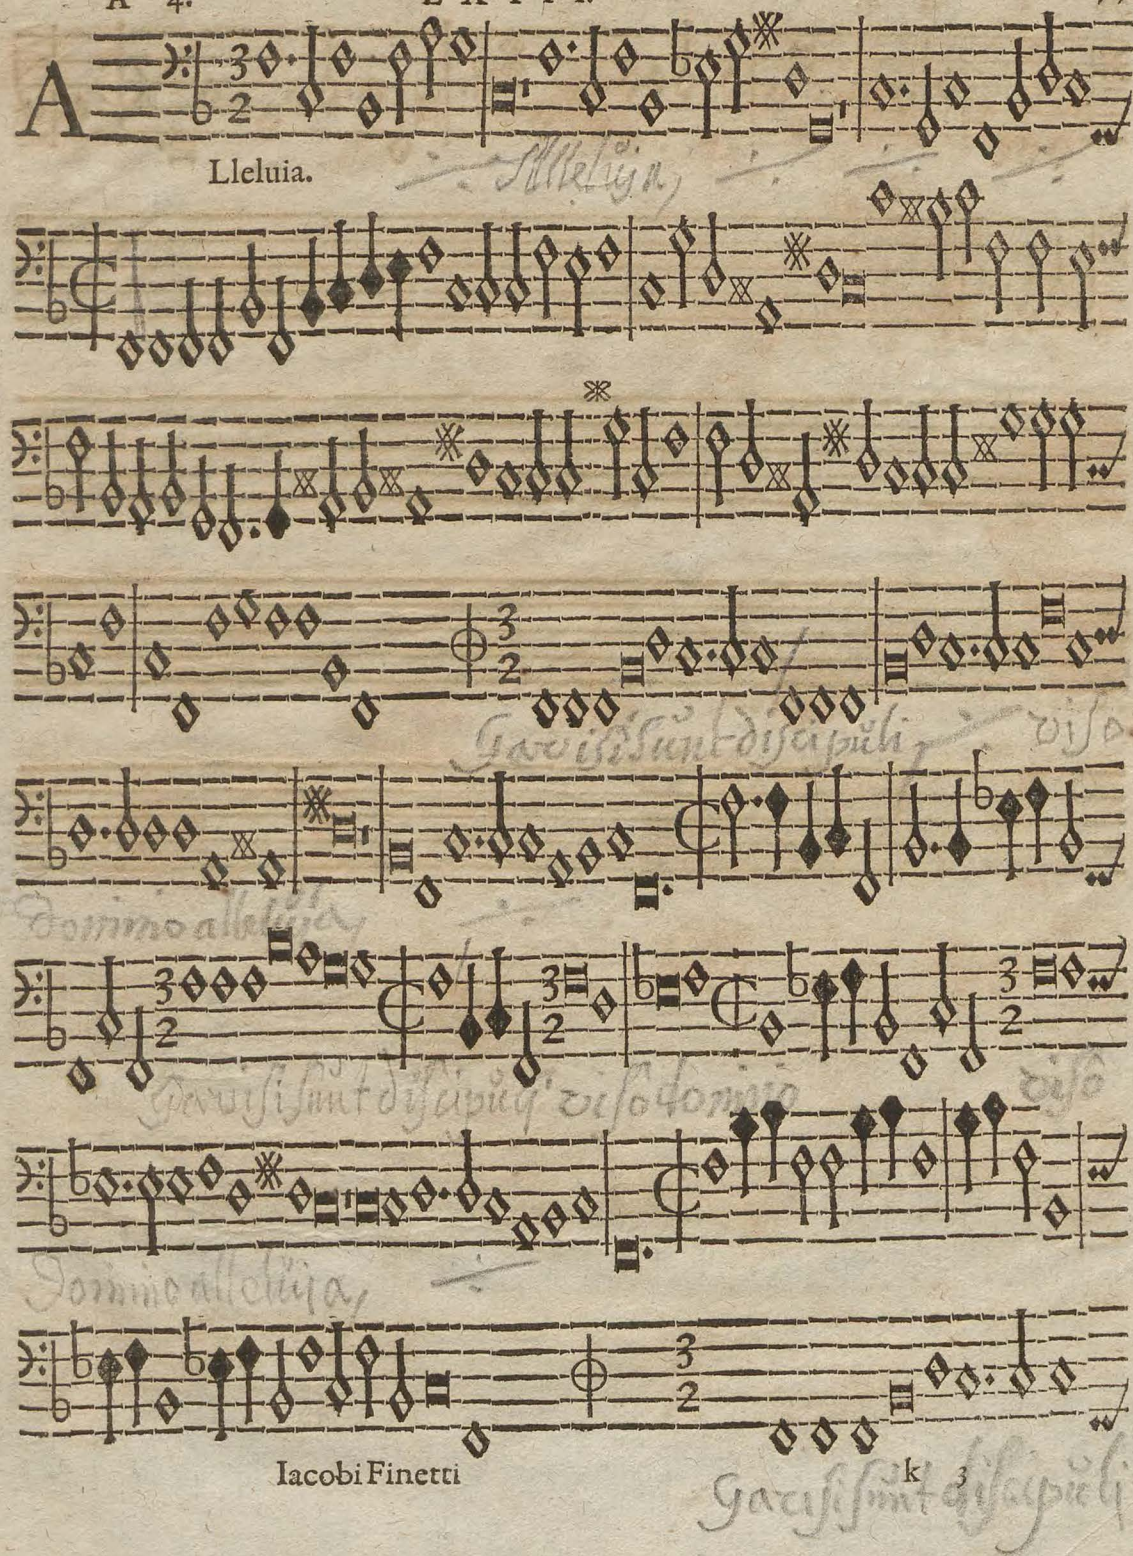 A 4.
A
Lleluia.
Alleluija,
Gavisi sunt discipuli, viso
Domino alleluija,
Gavisi sunt discipuli viso domino viso
Domino alleluija,
Iacobi Finetti k 3
Gavisi sunt discipuli